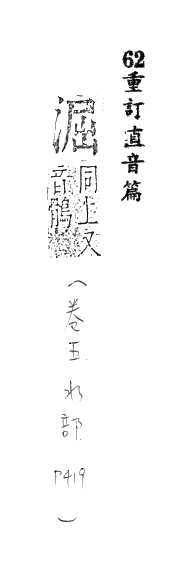 62重訂直音篇
淈
同上又
音鶻
(卷五 水部 P419)